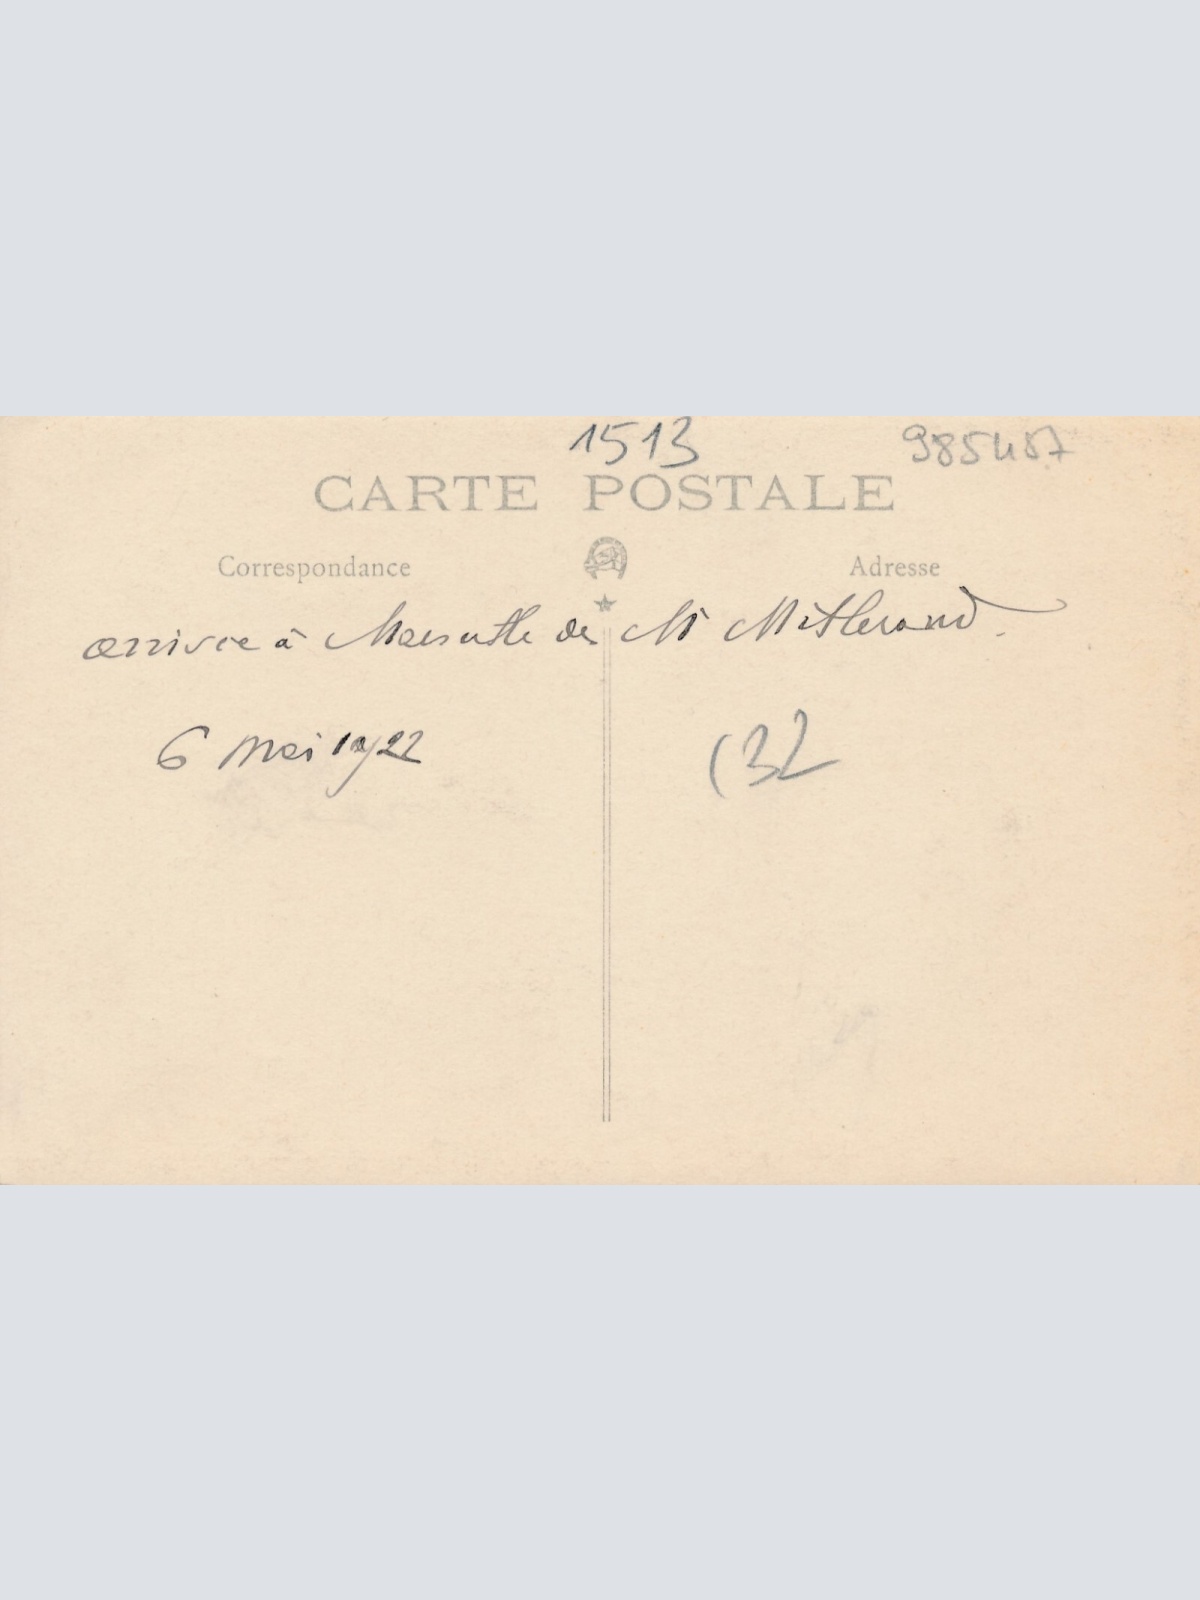 1513
985457
CARTE POSTALE
Correspondance
Adresse
arrivée à Marseille de Mr Millerand.
6 Mai 1922
(32